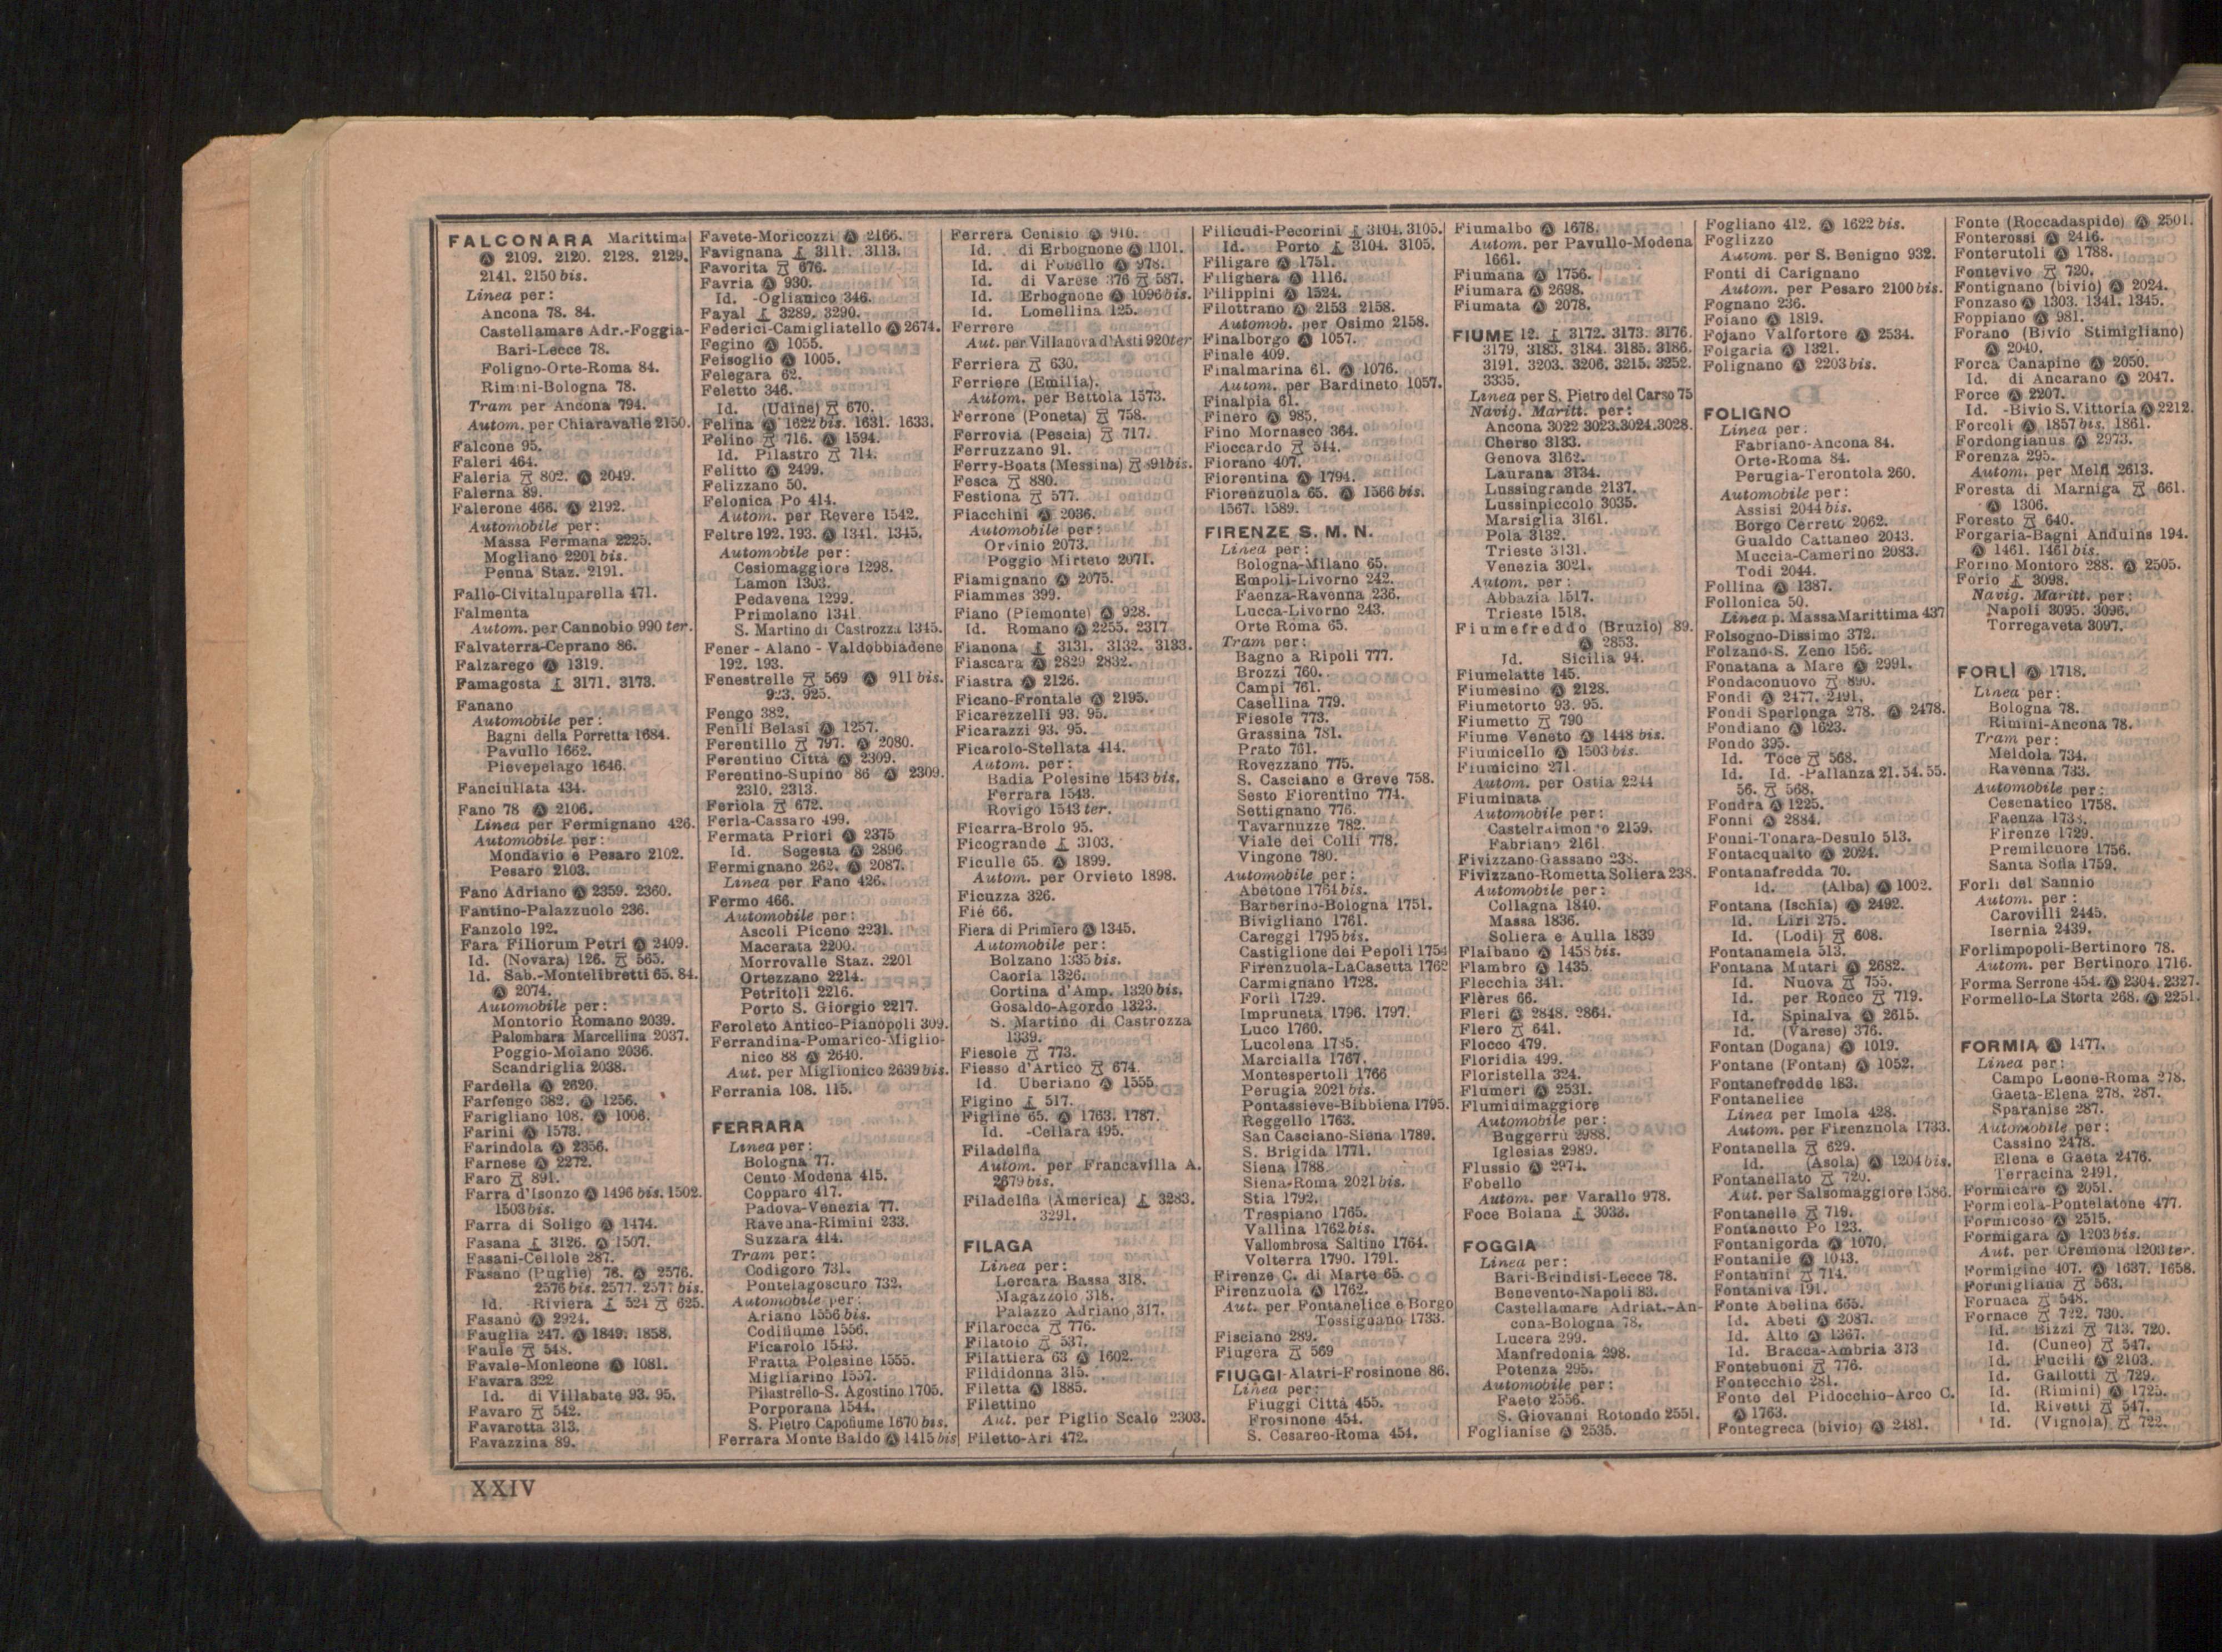 FALCONARA Marittima
Ⓐ 2109. 2120. 2128. 2129.
2141. 2150 bis.
Linea per:
Ancona 78. 84.
Castellamare Adr.-Foggia-
Bari-Lecce 78.
Foligno-Orte-Roma 84.
Rimini-Bologna 78.
Tram per Ancona 794.
Autom. per Chiaravalle 2150.
Falcone 95.
Faleri 464.
Faleria 802. Ⓐ 2049.
Falerna 89.
Falerone 466. Ⓐ 2192.
Automobile per:
Massa Fermana 2225.
Mogliano 2201 bis.
Penna Staz. 2191.
Fallo-Civitaluparella 471.
Falmenta
Autom. per Cannobio 990 ter.
Falvaterra-Ceprano 86.
Falzarego Ⓐ 1319.
Famagosta 3171. 3173.
Fanano
Automobile per:
Bagni della Porretta 1684.
Pavullo 1662.
Pievepelago 1646.
Fanciullata 434.
Fano 78 Ⓐ 2106.
Linea per Fermignano 426.
Automobile per:
Mondavio e Pesaro 2102.
Pesaro 2103.
Fano Adriano Ⓐ 2359. 2360.
Fantino-Palazzuolo 236.
Fanzolo 192.
Fara Filiorum Petri Ⓐ 2409.
Id. (Novara) 126. 565.
Id. Sab.-Montelibretti 65. 84.
Ⓐ 2074.
Automobile per:
Montorio Romano 2039.
Palombara Marcellina 2037.
Poggio-Moiano 2036.
Scandriglia 2038.
Fardella Ⓐ 2620.
Farfengo 382. Ⓐ 1256.
Farigliano 108. Ⓐ 1006.
Farini Ⓐ 1573.
Farindola Ⓐ 2356.
Farnese Ⓐ 2272.
Faro 891.
Farra d'Isonzo Ⓐ 1496 bis. 1502.
1503 bis.
Farra di Soligo Ⓐ 1474.
Fasana 3126. Ⓐ 1507.
Fasani-Cellole 287.
Fasano (Puglie) 78. Ⓐ 2576.
2576 bis. 2577. 2577 bis.
Id. -Riviera 524 625.
Fasanò Ⓐ 2924.
Fauglia 247. Ⓐ 1849. 1858.
Faule 548.
Favale-Monleone Ⓐ 1081.
Favara 322
Id. di Villabate 93. 95.
Favaro 542.
Favarotta 313.
Favazzina 89.
Favete-Moricozzi Ⓐ 2166.
Favignana 3111. 3113.
Favorita 676.
Favria Ⓐ 930.
Id. -Oglianico 346.
Fayal 3289. 3290.
Federici-Camigliatello Ⓐ 2674.
Fegino Ⓐ 1055.
Feisoglio Ⓐ 1005.
Felegara 62.
Feletto 346.
Id. (Udine) 670.
Felina Ⓐ 1622 bis. 1631. 1633.
Felino 716. Ⓐ 1594.
Id. Pilastro 714.
Felitto Ⓐ 2499.
Felizzano 50.
Felonica Po 414.
Autom. per Revere 1542.
Feltre 192. 193. Ⓐ 1341. 1345.
Automobile per:
Cesiomaggiore 1298.
Lamon 1303.
Pedavena 1299.
Primolano 1341
S. Martino di Castrozza 1345.
Fener - Alano - Valdobbiadene
192. 193.
Fenestrelle 569 Ⓐ 911 bis.
923. 925.
Fengo 382.
Fenili Belasi Ⓐ 1257.
Ferentillo 797. Ⓐ 2080.
Ferentino Città Ⓐ 2309.
Ferentino-Supino 86 Ⓐ 2309.
2310. 2313.
Feriola 672.
Ferla-Cassaro 499.
Fermata Priori Ⓐ 2375
Id. Segesta Ⓐ 2896
Fermignano 262. Ⓐ 2087.
Linea per Fano 426.
Fermo 466.
Automobile per:
Ascoli Piceno 2231.
Macerata 2200.
Morrovalle Staz. 2201
Ortezzano 2214.
Petritoli 2216.
Porto S. Giorgio 2217.
Feroleto Antico-Pianopoli 309.
Ferrandina-Pomarico-Miglio-
nico 88 Ⓐ 2640.
Aut. per Miglionico 2639 bis.
Ferrania 108. 115.
FERRARA
Linea per:
Bologna 77.
Cento Modena 415.
Copparo 417.
Padova-Venezia 77.
Ravenna-Rimini 233.
Suzzara 414.
Tram per:
Codigoro 731.
Pontelagoscuro 732.
Automobile per:
Ariano 1556 bis.
Codifiume 1556.
Ficarolo 1543.
Fratta Polesine 1555.
Migliarino 1557.
Pilastrello-S. Agostino 1705.
Porporana 1544.
S. Pietro Capofiume 1670 bis.
Ferrara Monte Baldo Ⓐ 1415 bis
Ferrera Cenisio Ⓐ 910.
Id. di Erbognone Ⓐ 1101.
Id. di Fobello Ⓐ 978.
Id. di Varese 376 587.
Id. Erbognone Ⓐ 1096 bis.
Id. Lomellina 125.
Ferrere
Aut. per Villanova d'Asti 920 ter
Ferriera 630.
Ferriere (Emilia).
Autom. per Bettola 1573.
Ferrone (Poneta) 758.
Ferrovia (Pescia) 717.
Ferruzzano 91.
Ferry-Boats (Messina) 891 bis.
Fesca 880.
Festiona 577.
Fiacchini Ⓐ 2036.
Automobile per:
Orvinio 2073.
Poggio Mirteto 2071.
Fiamignano Ⓐ 2075.
Fiammes 399.
Fiano (Piemonte) Ⓐ 928.
Id. Romano Ⓐ 2255. 2317
Fianona 3131. 3132. 3133.
Fiascara Ⓐ 2829 2832.
Fiastra Ⓐ 2126.
Ficano-Frontale Ⓐ 2195.
Ficarezzelli 93. 95.
Ficarazzi 93. 95.
Ficarolo-Stellata 414.
Autom. per:
Badia Polesine 1543 bis.
Ferrara 1543.
Rovigo 1543 ter.
Ficarra-Brolo 95.
Ficogrande 3103.
Ficulle 65. Ⓐ 1899.
Autom. per Orvieto 1898.
Ficuzza 326.
Fié 66.
Fiera di Primiero Ⓐ 1345.
Automobile per:
Bolzano 1335 bis.
Caoria 1326.
Cortina d'Amp. 1320 bis.
Gosaldo-Agordo 1323.
S. Martino di Castrozza
1339.
Fiesole 773.
Fiesso d'Artico 674.
Id. Uberiano Ⓐ 1555
Figino 517.
Figline 65. Ⓐ 1763. 1787.
Id. -Cellara 495.
Filadelfia
Autom. per Francavilla A.
2679 bis.
Filadelfia (America) 3283.
3291.
FILAGA
Linea per:
Lercara Bassa 318.
Magazzolo 318.
Palazzo Adriano 317.
Filarocca 776.
Filatoio 537.
Filattiera 63 Ⓐ 1602.
Fildidonna 315.
Filetta Ⓐ 1885.
Filettino
Aut. per Piglio Scalo 2303.
Filetto-Ari 472.
Filicudi-Pecorini 3104. 3105.
Id. Porto 3104. 3105.
Filigare Ⓐ 1751.
Filighera Ⓐ 1116.
Filippini Ⓐ 1524.
Filottrano Ⓐ 2153 2158.
Automob. per Osimo 2158.
Finalborgo Ⓐ 1057.
Finale 409.
Finalmarina 61. Ⓐ 1076.
Autom. per Bardineto 1057.
Finalpia 61.
Finero Ⓐ 985.
Fino Mornasco 364.
Fioccardo 544.
Fiorano 407.
Fiorentina Ⓐ 1794.
Fiorenzuola 65. Ⓐ 1566 bis.
1567. 1589.
FIRENZE S. M. N.
Linea per:
Bologna-Milano 65.
Empoli-Livorno 242.
Faenza-Ravenna 236.
Lucca-Livorno 243.
Orte Roma 65.
Tram per:
Bagno a Ripoli 777.
Brozzi 760.
Campi 761.
Casellina 779.
Fiesole 773.
Grassina 781.
Prato 761.
Rovezzano 775.
S. Casciano e Greve 758.
Sesto Fiorentino 774.
Settignano 776.
Tavarnuzze 782.
Viale dei Colli 778.
Vingone 780.
Automobile per:
Abetone 1764 bis.
Barberino-Bologna 1751.
Bivigliano 1761.
Careggi 1795 bis.
Castiglione dei Pepoli 1754
Firenzuola-La Casetta 1762
Carmignano 1728.
Forlì 1729.
Impruneta 1796. 1797.
Luco 1760.
Lucolena 1785.
Marcialla 1767.
Montespertoli 1766
Perugia 2021 bis.
Pontassieve-Bibbiena 1795.
Reggello 1763.
San Casciano-Siena 1789.
S. Brigida 1771.
Siena 1788
Siena-Roma 2021 bis.
Stia 1792.
Trespiano 1765.
Vallina 1762 bis.
Vallombrosa Saltino 1764.
Volterra 1790. 1791.
Firenze C. di Marte 65.
Firenzuola Ⓐ 1762.
Aut. per Fontanelice e Borgo
Tossignano 1733.
Fisciano 289.
Fiugera 569
FIUGGI-Alatri-Frosinone 86.
Linea per:
Fiuggi Città 455.
Frosinone 454.
S. Cesareo-Roma 454.
Fiumalbo Ⓐ 1678.
Autom. per Pavullo-Modena
1661.
Fiumana Ⓐ 1756.
Fiumara Ⓐ 2698.
Fiumata Ⓐ 2078.
FIUME 12. 3172. 3173. 3176.
3179. 3183. 3184. 3185. 3186.
3191. 3203. 3206. 3215. 3252.
3335.
Linea per S. Pietro del Carso 75
Navig. Maritt. per:
Ancona 3022 3023. 3024. 3028.
Cherso 3133.
Genova 3162.
Laurana 3134.
Lussingrande 2137.
Lussinpiccolo 3035.
Marsiglia 3161.
Pola 3132.
Trieste 3131.
Venezia 3021.
Autom. per:
Abbazia 1517.
Trieste 1518.
Fiumefreddo (Bruzio) 89.
Ⓐ 2853.
Id. Sicilia 94.
Fiumelatte 145.
Fiumesino Ⓐ 2128.
Fiumetorto 93. 95.
Fiumetto 790
Fiume Veneto Ⓐ 1448 bis.
Fiumicello Ⓐ 1503 bis.
Fiumicino 271.
Autom. per Ostia 2244
Fiuminata
Automobile per:
Castelraimondo 2159.
Fabriano 2161
Fivizzano-Gassano 238.
Fivizzano-Rometta Soliera 238.
Automobile per:
Collagna 1840.
Massa 1836.
Soliera e Aulla 1839
Flaibano Ⓐ 1458 bis.
Flambro Ⓐ 1435.
Flecchia 341.
Flères 66.
Fleri Ⓐ 2848. 2864.
Flero 641.
Flocco 479.
Floridia 499.
Floristella 324.
Flumeri Ⓐ 2531.
Fluminimaggiore
Automobile per:
Buggerru 2988.
Iglesias 2989.
Flussio Ⓐ 2974.
Fobello
Autom. per Varallo 978.
Foce Boiana 3033.
FOGGIA
Linea per:
Bari-Brindisi-Lecce 78.
Benevento-Napoli 83.
Castellamare Adriat.-An-
cona-Bologna 78.
Lucera 299.
Manfredonia 298.
Potenza 295.
Automobile per:
Faeto 2556.
S. Giovanni Rotondo 2551.
Foglianise Ⓐ 2535.
Fogliano 412. Ⓐ 1622 bis.
Foglizzo
Autom. per S. Benigno 932.
Fonti di Carignano
Autom. per Pesaro 2100 bis.
Fognano 236.
Foiano Ⓐ 1819.
Fojano Valfortore Ⓐ 2534.
Folgaria Ⓐ 1321.
Folignano Ⓐ 2203 bis.
FOLIGNO
Linea per:
Fabriano-Ancona 84.
Orte-Roma 84.
Perugia-Terontola 260.
Automobile per:
Assisi 2044 bis.
Borgo Cerreto 2062.
Gualdo Cattaneo 2043.
Muccia-Camerino 2083.
Todi 2044.
Follina Ⓐ 1387.
Follonica 50.
Linea p. Massa Marittima 437
Folsogno-Dissimo 372.
Folzano-S. Zeno 156.
Fonatana a Mare Ⓐ 2991.
Fondaconuovo 890.
Fondi Ⓐ 2477. 2491.
Fondi Sperlonga 278. Ⓐ 2478.
Fondiano Ⓐ 1623.
Fondo 395.
Id. Toce 568.
Id. Id. -Pallanza 21. 54. 55.
56. 568.
Fondra Ⓐ 1225.
Fonni Ⓐ 2884.
Fonni-Tonara-Desulo 513.
Fontacqualto Ⓐ 2024.
Fontanafredda 70.
Id. (Alba) Ⓐ 1002.
Fontana (Ischia) Ⓐ 2492.
Id. Liri 275.
Id. (Lodi) 608.
Fontanamela 513.
Fontana Mutari Ⓐ 2682.
Id. Nuova 755.
Id. per Ronco 719.
Id. Spinalva Ⓐ 2615.
Id. (Varese) 376.
Fontan (Dogana) Ⓐ 1019.
Fontane (Fontan) Ⓐ 1052.
Fontanefredde 183.
Fontanelice
Linea per Imola 428.
Autom. per Firenzuola 1733.
Fontanella 629.
Id. (Asola) Ⓐ 1204 bis.
Fontanellato 720.
Aut. per Salsomaggiore 1586.
Fontanelle 719.
Fontanetto Po 123.
Fontanigorda Ⓐ 1070.
Fontanile Ⓐ 1043.
Fontanini 714.
Fontaniva 191.
Fonte Abelina 665.
Id. Abeti Ⓐ 2087.
Id. Alto Ⓐ 1367.
Id. Bracca-Ambria 373
Fontebuoni 776.
Fontecchio 281.
Fonte del Pidocchio-Arco C.
Ⓐ 1763.
Fontegreca (bivio) Ⓐ 2481.
Fonte (Roccadaspide) Ⓐ 2501.
Fonterossi Ⓐ 2416.
Fonterutoli Ⓐ 1788.
Fontevivo 720.
Fontignano (bivio) Ⓐ 2024.
Fonzaso Ⓐ 1303. 1341. 1345.
Foppiano Ⓐ 981.
Forano (Bivio Stimigliano)
Ⓐ 2040.
Forca Canapine Ⓐ 2050.
Id. di Ancarano Ⓐ 2047.
Force Ⓐ 2207.
Id. -Bivio S. Vittoria Ⓐ 2212.
Forcoli Ⓐ 1857 bis. 1861.
Fordongianus Ⓐ 2973.
Forenza 295.
Autom. per Melfi 2613.
Foresta di Marniga 661.
Ⓐ 1306.
Foresto 640.
Forgaria-Bagni Anduins 194.
Ⓐ 1461. 1461 bis.
Forino Montoro 288. Ⓐ 2505.
Forio 3098.
Navig. Maritt. per:
Napoli 3095. 3096.
Torregaveta 3097.
FORLÌ Ⓐ 1718.
Linea per:
Bologna 78.
Rimini-Ancona 78.
Tram per:
Meldola 734.
Ravenna 733.
Automobile per:
Cesenatico 1758.
Faenza 1733.
Firenze 1729.
Premilcuore 1756.
Santa Sofia 1759.
Forlì del Sannio
Autom. per:
Carovilli 2445.
Isernia 2439.
Forlimpopoli-Bertinoro 78.
Autom. per Bertinoro 1716.
Forma Serrone 454. Ⓐ 2304. 2327.
Formello-La Storta 268. Ⓐ 2251.
FORMIA Ⓐ 1477.
Linea per:
Campo Leone-Roma 278.
Gaeta-Elena 278. 287.
Sparanise 287.
Automobile per:
Cassino 2478.
Elena e Gaeta 2476.
Terracina 2491.
Formicare Ⓐ 2051.
Formicola-Pontelatone 477.
Formicoso Ⓐ 2515.
Formigara Ⓐ 1203 bis.
Aut. per Cremona 1203 ter.
Formigine 407. Ⓐ 1637. 1658.
Formigliana 563.
Fornaca 548.
Fornace 722. 730.
Id. Bizzi 713. 720.
Id. (Cuneo) 547.
Id. Fucili Ⓐ 2103.
Id. Gallotti 729.
Id. (Rimini) Ⓐ 1725.
Id. Rivetti 547.
Id. (Vignola) 722.
XXIV